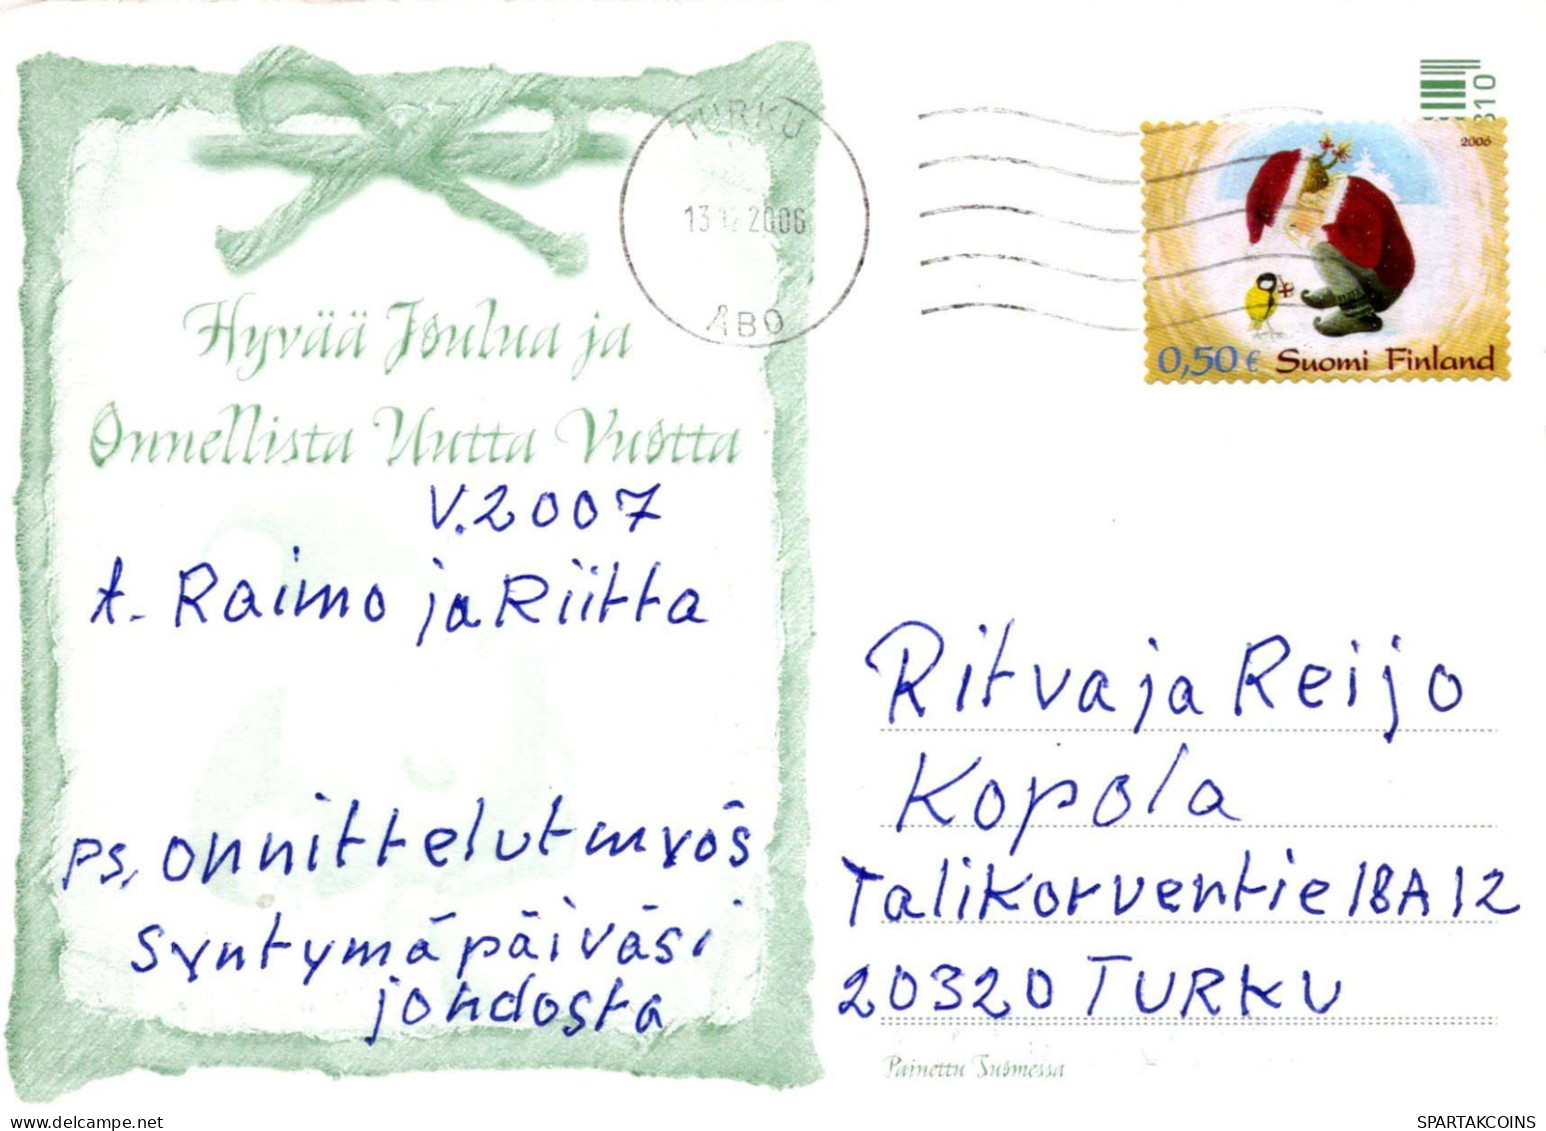 TURKU
2006
ÅBO
310
2006
0,50 € Suomi Finland
Hyvää Joulua ja
Onnellista Uutta Vuotta
V. 2007
t. Raimo ja Riitta
PS. Onnittelut myös
Syntymäpäiväsi
johdosta
Ritva ja Reijo
Kopola
Talikorventie 18 A 12
20320 TURKU
Painettu Suomessa
SPARTAKCOINS